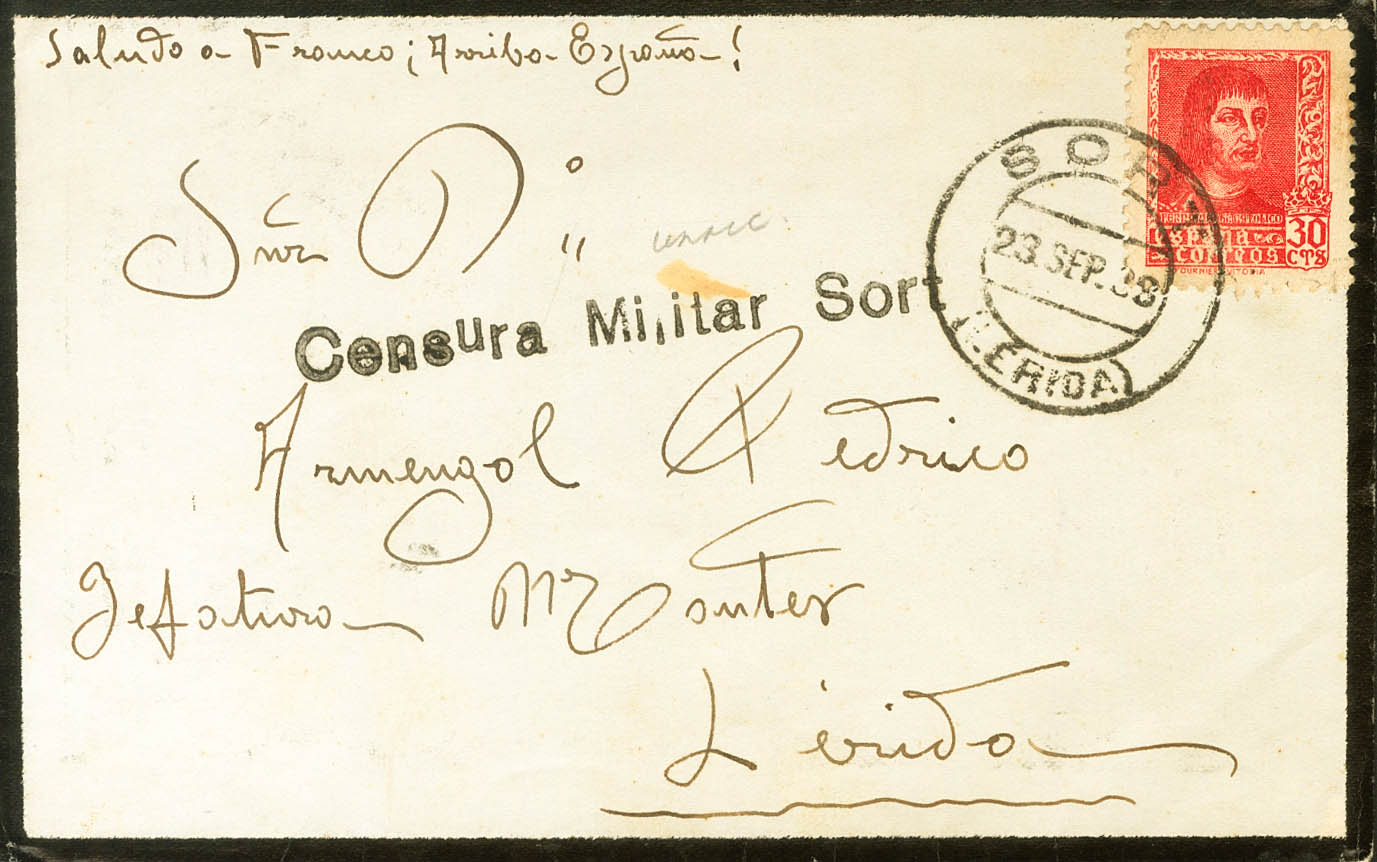 Saludo a Franco ¡Arriba España!
Snr D.
Censura Militar Sort
SORT
23.SEP.38
(LERIDA)
FERNANDO EL CATOLICO
ESPAÑA
CORREOS
30
CTS
FOURNIER VITORIA
Armengol
Jefatura Montes
Lérida